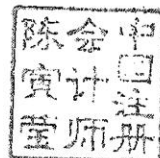 中国注册
会计师
陈